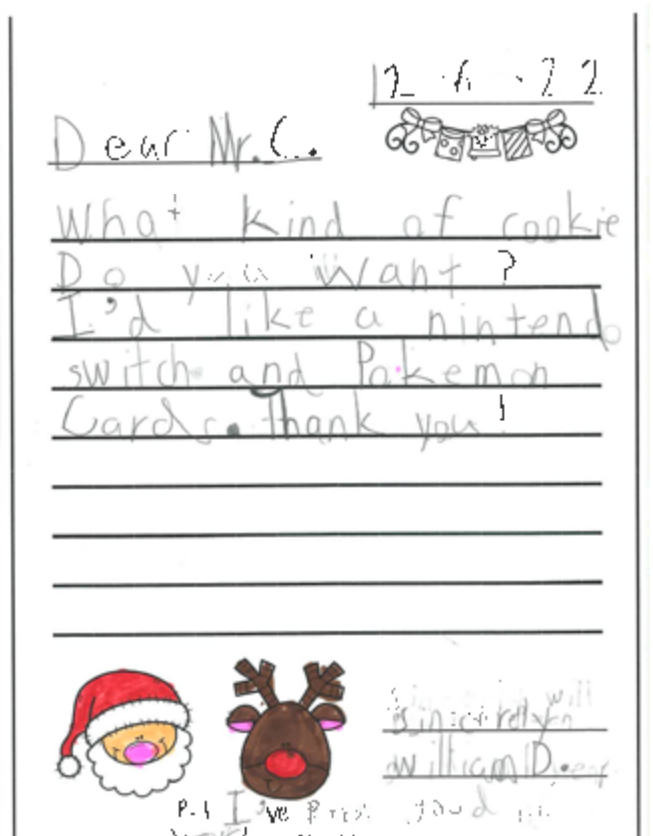 12-6-22
Dear Mr. C.
What kind of cookie
Do you want?
I'd like a nintendo
switch and Pokemon
Cards. Thank you!
Sincerely
William D.
I've